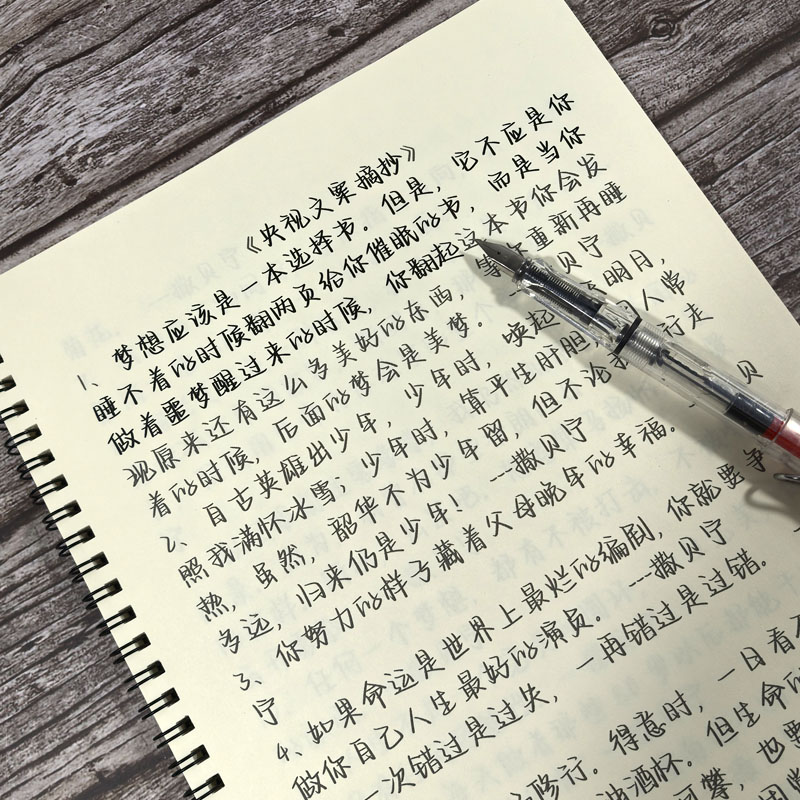 《央视文案摘抄》
1、梦想应该是一本选择书。但是,它不应是你
睡不着的时候翻两页给你催眠的书,而是当你
做着噩梦醒过来的时候,你翻起这本书你会发
现原来还有这么多美好的东西,等你重新再睡
着的时候,后面的梦会是美梦。 撒贝宁
2、自古英雄出少年,少年时,唤起 明月,
照我满怀冰雪;少年时,算平生肝胆, 人常
热,虽然,韶华不为少年留,但不论 行走
多远,归来仍是少年! --撒贝宁
3、你努力的样子藏着父母晚年的幸福。 贝
宁
4、如果命运是世界上最烂的编剧,你就要争
做你自己人生最好的演员。 --撒贝宁
一次错过是过失,一再错过是过错。
修行。得意时,一日看
酒杯。但生命
可攀,也要